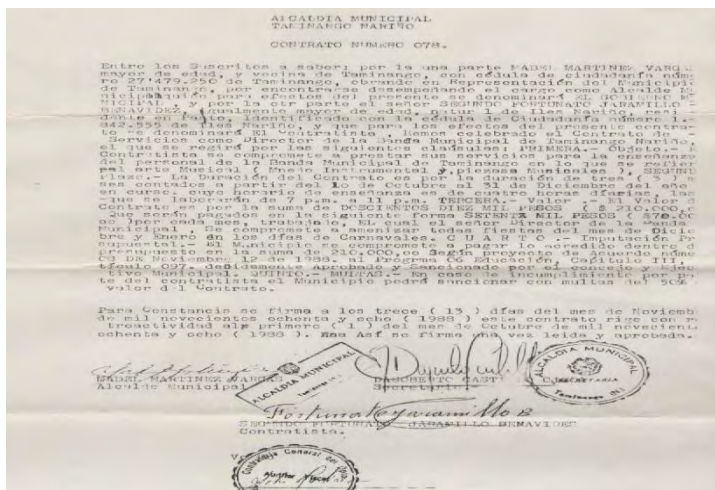 ALCALDIA MUNICIPAL
TAMINANGO NARIÑO
CONTRATO NUMERO 078.
Entre los Suscritos a saber; por la una parte MADEL MARTINEZ VARG
mayor de edad, y vecina de Taminango, con cédula de ciudadanía núme
ro 27'479.250 de Taminango, obrando en Representación del Municipi
de Taminango, por encontrarse desempeñando el cargo como Alcalde M
nicipal quien por efectos del presente se denominará EL GOBIERNO M
NICIPAL, y por la otr parte el señor SEGUNDO FORTUNATO JARAMILLO -
BENAVIDEZ, igualmente mayor de edad, natural de Iles Nariño y resi
dente en Pasto, Identificado con la cédula de Ciudadanía número 1.
842.555 de Iles Nariño, y que para los efectos del presente contra-
to se denominará El Contratista, Hemos celebrado el Contrato de -
Servicios como Director de la Banda Municipal de Taminango Nariño,
el que se regirá por las siguientes claúsulas; PRIMERA.- Objeto.- E
Contratista se compromete a prestar sus servicios para la enseñanza
del personal de la Banda Municipal de Taminango en lo que se refier
al arte Musical ( Manejo Instrumental y piezas Musicales ), SEGUND
Plazo.- La Duración del Contrato es por la duración de tres ( 3 ) m
ses contados a partir del 1o de Octubre al 31 de Diciembre del año
en curso, cuyo horario de enseñanza es de cuatro horas diarias, las
que se laborarán de 7 p.m. a 11 p.m. TERCERA.- Valor.- El Valor d
Contrato es por la suma de DOSCIENTOS DIEZ MIL PESOS ( $ 210.000,o
Que serán pagados en la siguiente forma SETENTA MIL PESOS ( $70.00
oo )por cada mes, trabajado, EL cual el señor Director de la Banda
Municipal, Se compromete a amenizar todas fiestas del mes de Dicie
bre y Enero en los días de Carnavales. C U A R T O .- Imputación Pr
supuestal.- El Municipio se compromete a pagar lo acredido dentro d
presupuesto en la suma de 210.000,oo Según proyecto de Acuerdo núme
03 DE Noviembre 12 de 1988. al Programa 06 Educación, Capítulo III,
título 097. debidamente Aprobado y Sancionado por el concejo y Ejec
tivo Municipal. QUINTO.- MULTAS.- En caso de incumplimiento por pa
te del contratista el Municipio podrá sancionar con multas del 50%
valor del Contrato.
Para Constancia se firma a los trece ( 13 ) días del mes de Noviemb
de mil novecientos ochenta y ocho ( 1988 ) este contrato rige con r
troactividad al primero ( 1 ) del mes de Octubre de mil novecient
ochenta y ocho ( 1988 ). Así se firma una vez leida y aprobada.
MADEL MARTINEZ VARGAS
Alcalde Municipal
ALCALDIA MUNICIPAL
Secretario
ALCALDIA MUNICIPAL
SECRETARIA
Taminango (N)
Fortunato Jaramillo B
SEGUNDO FORTUNATO JARAMILLO BENAVIDEZ
Contratista.
Contraloría General del
Auditor Fiscal